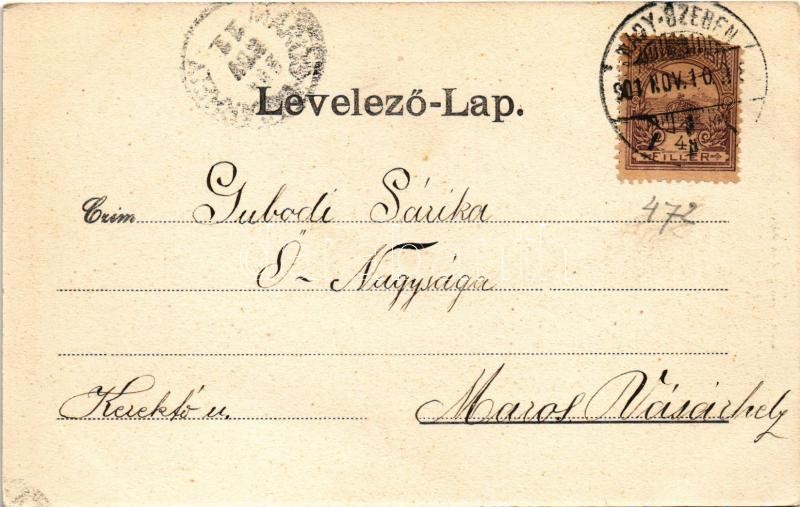 NAGY-SZEBEN
901 NOV. 10
Levelező-Lap.
4
FILLER
472
Czim Gubodi Sárika
Ő-Nagysága
Kerektó u. Maros Vásárhely